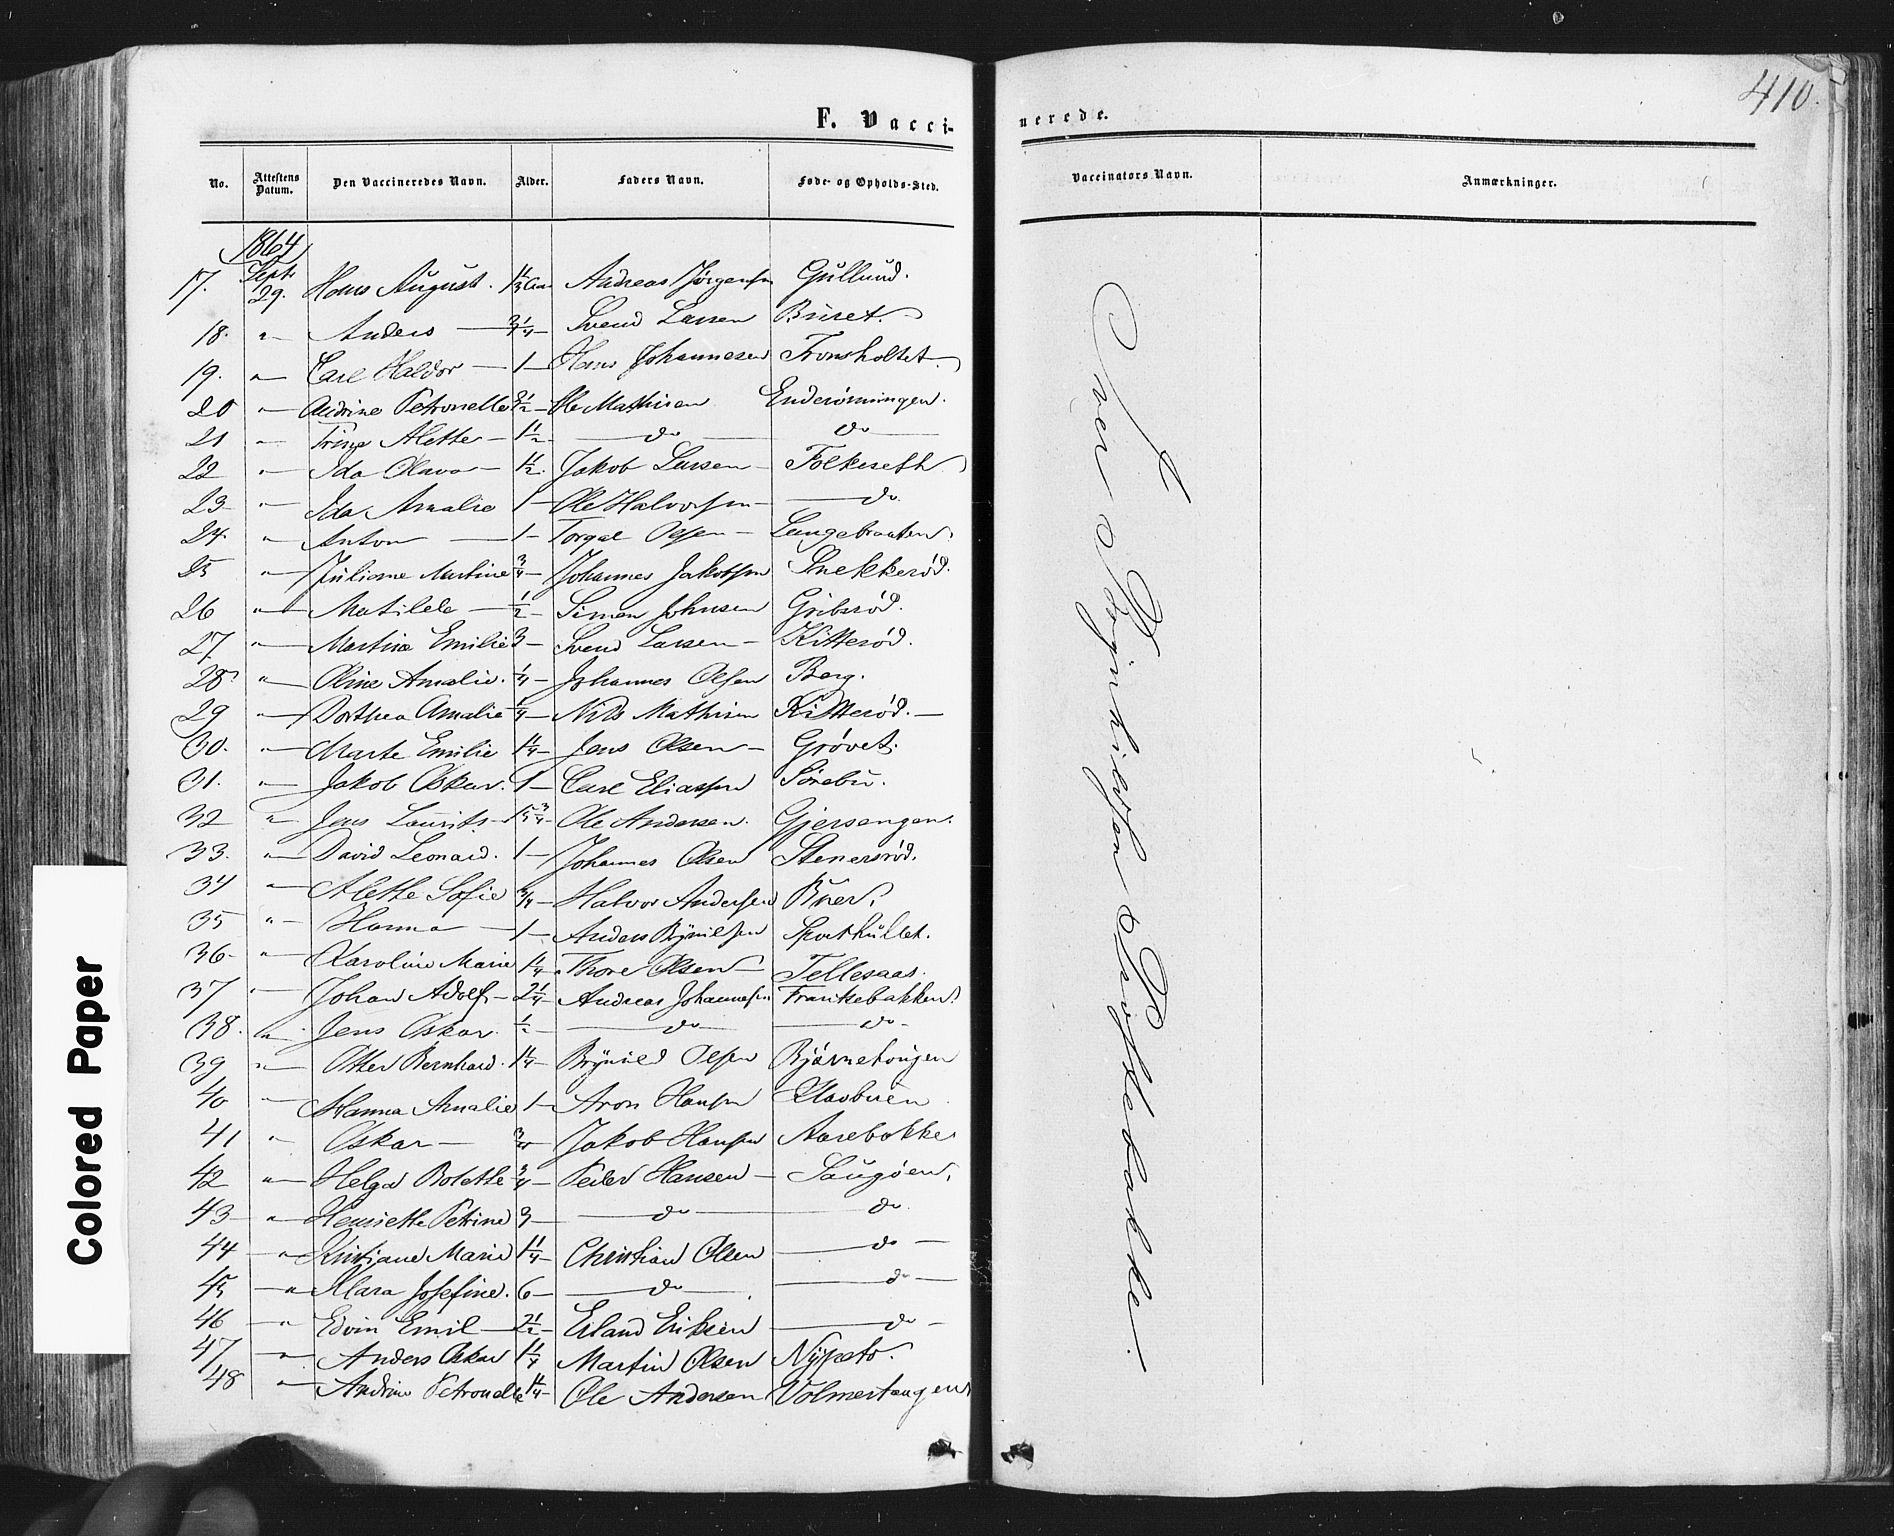 410.
F. Vacci-
nerede.
No. Attestens Datum. Den Vaccineredes Navn. Alder. Faders Navn. Føde- og Opholds-Sted. Vaccinators Navn. Anmærkninger.
1864
17. Sept. 29. Hans August. 1 1/3 Andreas Jørgensen Gullund.
18. " Anders — Svend Larsen Buset.
19. " Carl Haldor — 1 — Hans Johannesen Fronsholtet
20 " Andrine Petronelle 3 1/2 — Ole Mathisen Enderønningen.
21 " Trine Alette — 1 1/2 — do — do —
22 " Ida Olava — 1 1/2. Jakob Larsen — Folkeseth
23 " Ida Amalie 1 — Ole Halvorsen — — do
24. " Anton — 1 — Torger Olsen — Langebraaten.
25 " Juliane Martine 3/4 — Johannes Jakobsen Snekkerød.
26 " Matilde — 1/2 — Simen Johnsen Gribsrød.
27. " Martine Emilie 3 — Svend Larsen — Kitterød.
28. " Oline Amalie. 1/4 — Johannes Olsen Berg.
29 " Dorthea Amalie 1/4 — Nils Mathisen Kitterød. —
30. " Marte Emilie 1 1/4 — Jens Olsen — Grøvet.
31. " Jakob Oskar. 1 — Carl Eliassen Sørebu.
32 " Jens Laurits — Ole Andersen. Gjersengen.
33. " David Leonard. 1 — Johannes Olsen Stenersrød.
34 " Alette Sofie 3/4 — Halvor Andersen Buer.
35 " Hanna — 1 — Anders Brynildsen
36 " Karoline Marie 1 1/4 Thore Olsen — Tellesaas.
37 " Johan Adolf — 2 1/4 — Andreas Johannesen Frankebakken.
38. " Jens Oskar. 1/2 — do — — do —
39 " Otter Bernhard. 1 1/4 — Brynild Olsen Bjørnehougen
40 " Hanna Amalie 1 — Aron Hansen
41 " Oskar — 3/4 — Jakob Hansen Aarebakke
42 " Helga Bolette 3/4 — Peder Hansen — Saugøen.
43 — " Henriette Petrine 3 — — do — — do.
44 — " Kristiane Marie 1 1/4 — Christian Olsen — do —
45 — " Klara Josefine. 6 — — do — — do —
46 — " Edvin Emil — 2 1/2 — Erland Eriksen — do —
47 " Anders Oskar 1 1/4 Martin Olsen Nypeto.
48 " Andrine Petronelle 1 1/4 — Ole Andersen Volmertangen
Iver Reginhildsen Prestebakke.
Colored Paper